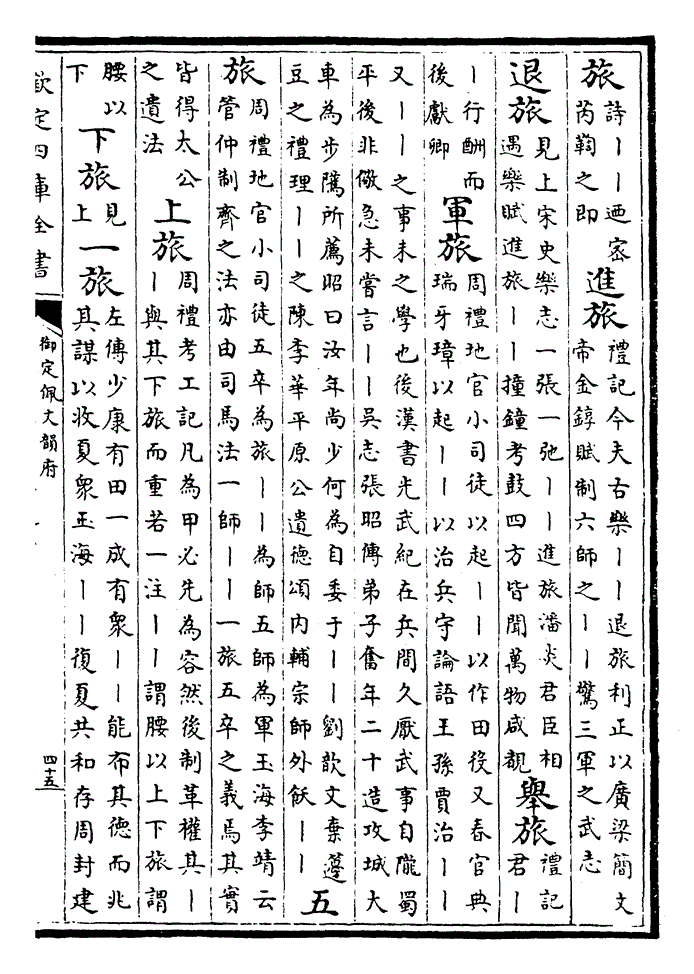 旅
詩丨丨迺密
芮鞫之即
進旅
禮記今夫古樂丨丨退旅利正以廣梁簡文
帝金錞賦制六師之丨丨驚三軍之武志
退旅
見上宋史樂志一張一弛丨丨進旅潘炎君臣相
遇樂賦進旅丨丨撞鐘考鼓四方皆聞萬物咸覩
舉旅
禮記
君丨
丨行酬而
後獻卿
軍旅
周禮地官小司徒以起丨丨以作田役又春官典
瑞牙璋以起丨丨以治兵守論語王孫賈治丨丨
又丨丨之事未之學也後漢書光武紀在兵間久厭武事自隴蜀
平後非儆急未嘗言丨丨吳志張昭傳弟子奮年二十造攻城大
車為步隲所薦昭曰汝年尚少何為自委于丨丨劉歆文棄籩
豆之禮理丨丨之陳李華平原公遺德頌内輔宗師外飫丨丨
五
旅
周禮地官小司徒五卒為旅丨丨為師五師為軍玉海李靖云
管仲制齊之法亦由司馬法一師丨丨一旅五卒之義焉其實
皆得太公
之遺法
上旅
周禮考工記凡為甲必先為容然後制革權其丨
丨與其下旅而重若一注丨丨謂腰以上下旅謂
腰以
下
下旅
見
上
一旅
左傳少康有田一成有衆丨丨能布其德而兆
其謀以收夏衆玉海丨丨復夏共和存周封建
欽定四庫全書
御定佩文韻府
四十五